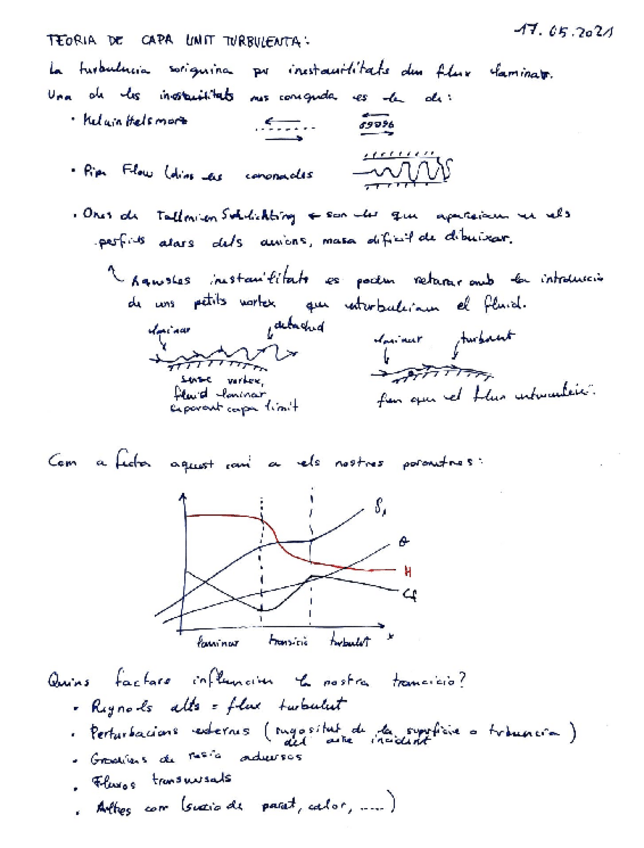 17.05.2021
TEORIA DE CAPA LIMIT TURBULENTA:
La turbulencia s'origina per inestabilitats d'un flux laminar.
Una de les inestabilitats mes coneguda es la de:
• Kelvin Helsmors
• Pipe Flow (dins les canonades
• Ones de Tallmien Schlichting ← son les que apareixen en els
perfils alars dels avions, massa dificil de dibuixar.
Aquestes inestabilitats es poden retardar amb la introduccio
de uns petits vortex que enturbulian el fluid.
laminar detached laminar turbulent
sense vortex,
fluid laminar
separant capa limit
fan que el flux
Com afecta aquest canvi a els nostres parametres:
δ₁
θ
H
Cf
laminar transició turbulent x
Quins factors influencien la nostra trancicio?
• Reynols alts = flux turbulent
• Perturbacions externes (rugositat de la superficie o turbulencia)
del aire incident
• Gradiens de presio adversos
• Fluxos transversals
• Altres com (succio de paret, calor, .....)